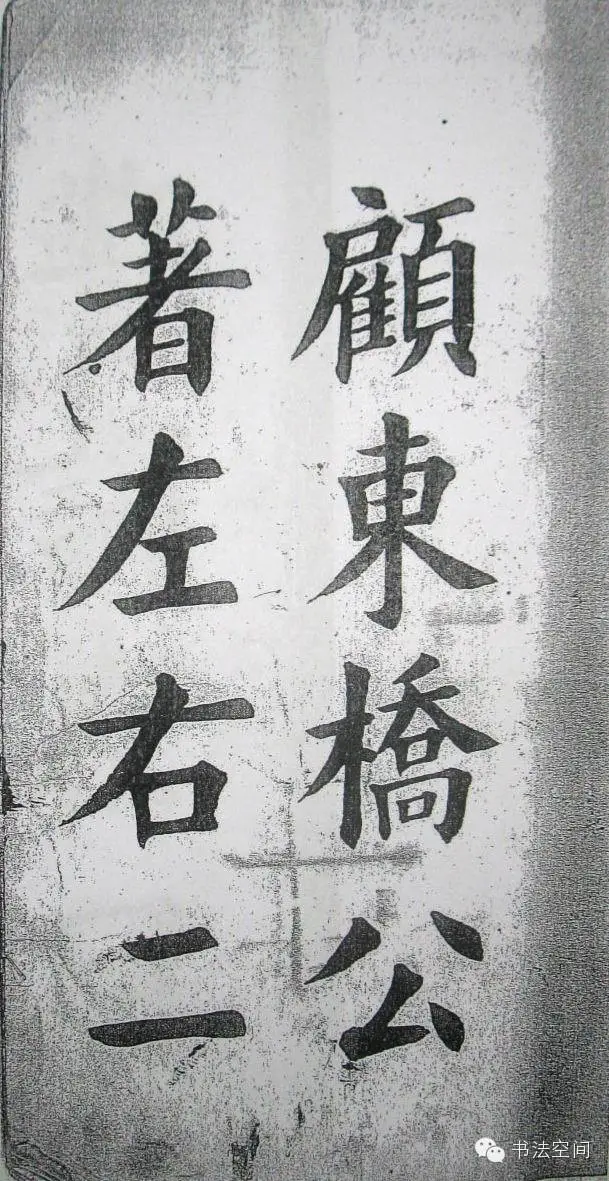 顧東橋公
著左右二
书法空间